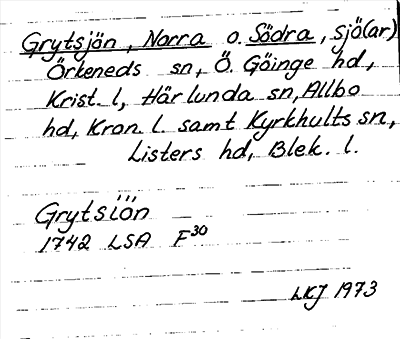 Grytsjön, Norra o. Södra, sjö(ar)
Örkeneds sn, Ö. Göinge hd,
Krist. l, Härlunda sn, Allbo
hd, Kron. l. samt Kyrkhults sn,
Listers hd, Blek. l.
Grytsiön
1742 LSA F30
LKJ 1973